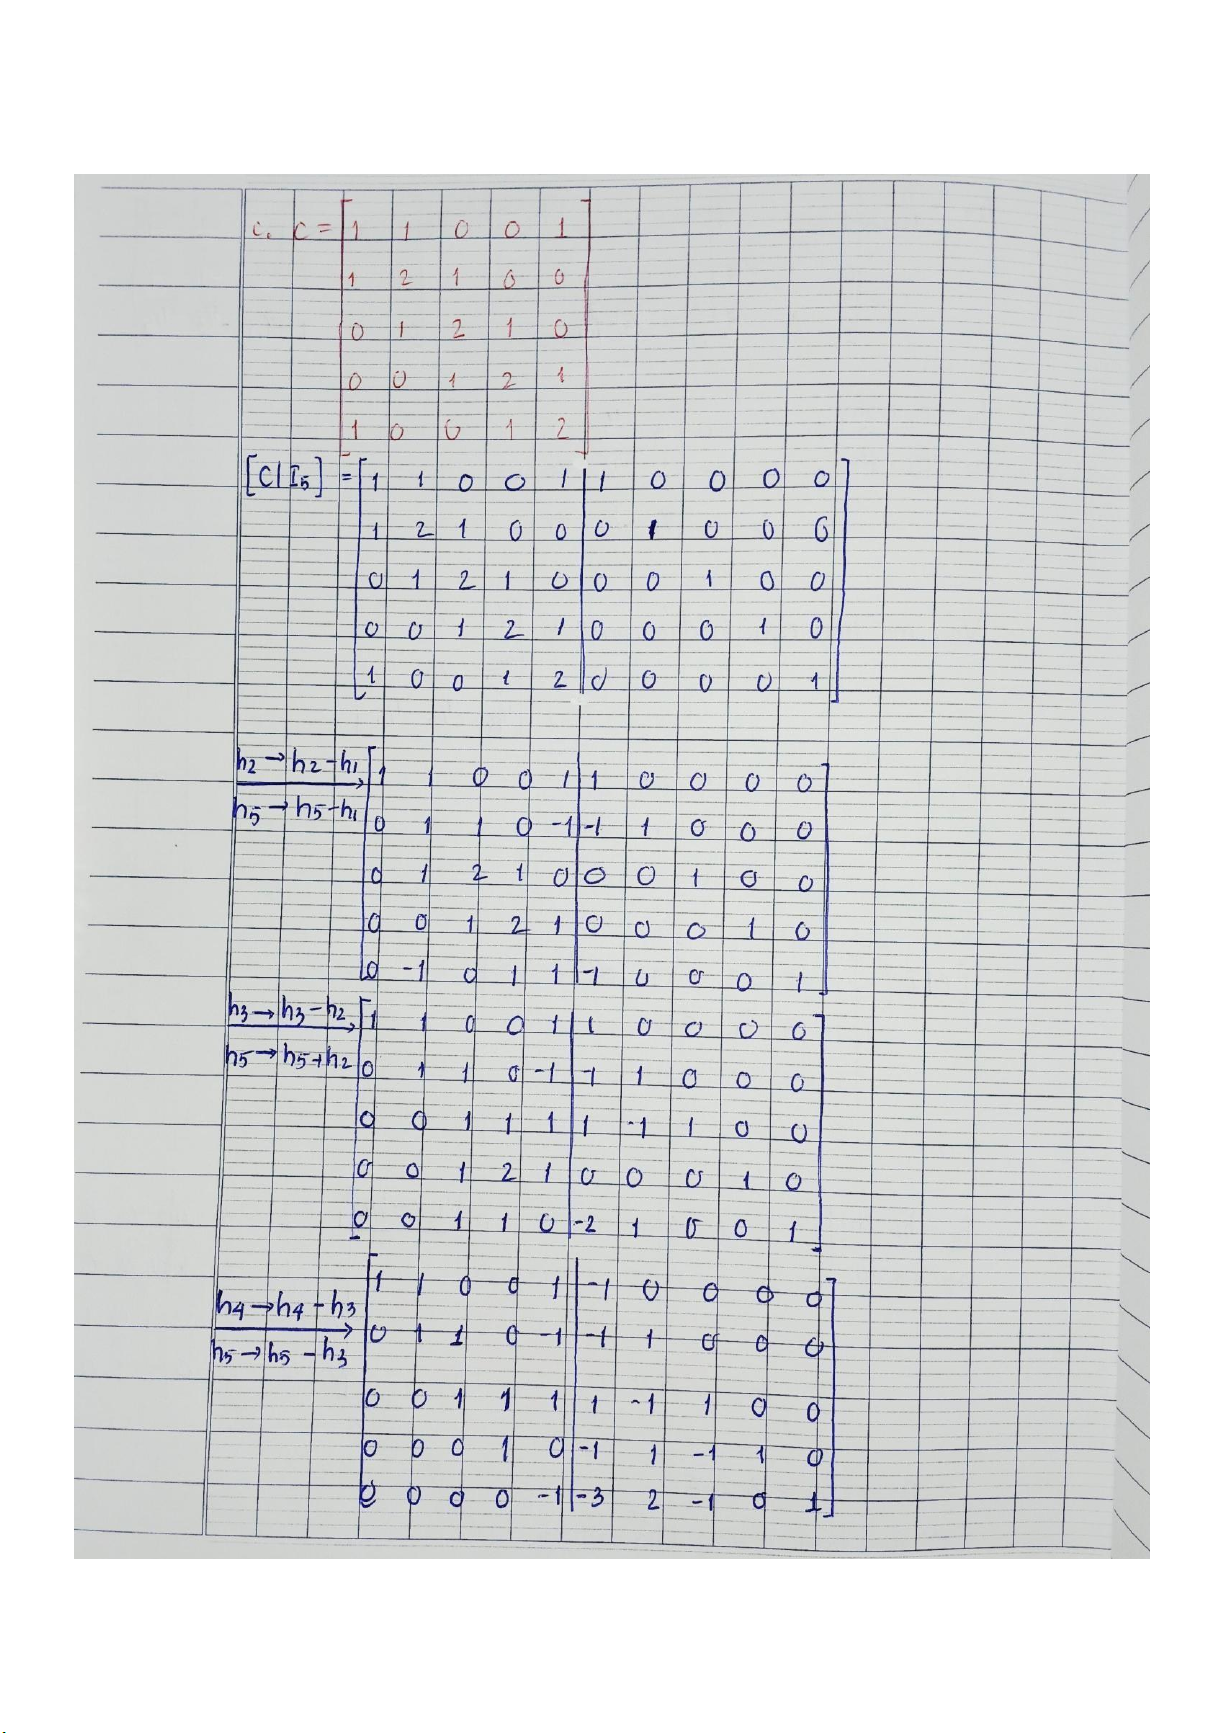 c. C = [ 1 1 0 0 1 ]
1 2 1 0 0
0 1 2 1 0
0 0 1 2 1
1 0 0 1 2
[C | I5] = [ 1 1 0 0 1 | 1 0 0 0 0 ]
1 2 1 0 0 | 0 1 0 0 0
0 1 2 1 0 | 0 0 1 0 0
0 0 1 2 1 | 0 0 0 1 0
1 0 0 1 2 | 0 0 0 0 1
h2 → h2 - h1 [ 1 1 0 0 1 | 1 0 0 0 0 ]
h5 → h5 - h1 0 1 1 0 -1 | -1 1 0 0 0
0 1 2 1 0 | 0 0 1 0 0
0 0 1 2 1 | 0 0 0 1 0
0 -1 0 1 1 | -1 0 0 0 1
h3 → h3 - h2 [ 1 1 0 0 1 | 1 0 0 0 0 ]
h5 → h5 + h2 0 1 1 0 -1 | -1 1 0 0 0
0 0 1 1 1 | 1 -1 1 0 0
0 0 1 2 1 | 0 0 0 1 0
0 0 1 1 0 | -2 1 0 0 1
[ 1 1 0 0 1 | -1 0 0 0 0 ]
h4 → h4 - h3 0 1 1 0 -1 | -1 1 0 0 0
h5 → h5 - h3
0 0 1 1 1 | 1 -1 1 0 0
0 0 0 1 0 | -1 1 -1 1 0
0 0 0 0 -1 | -3 2 -1 0 1